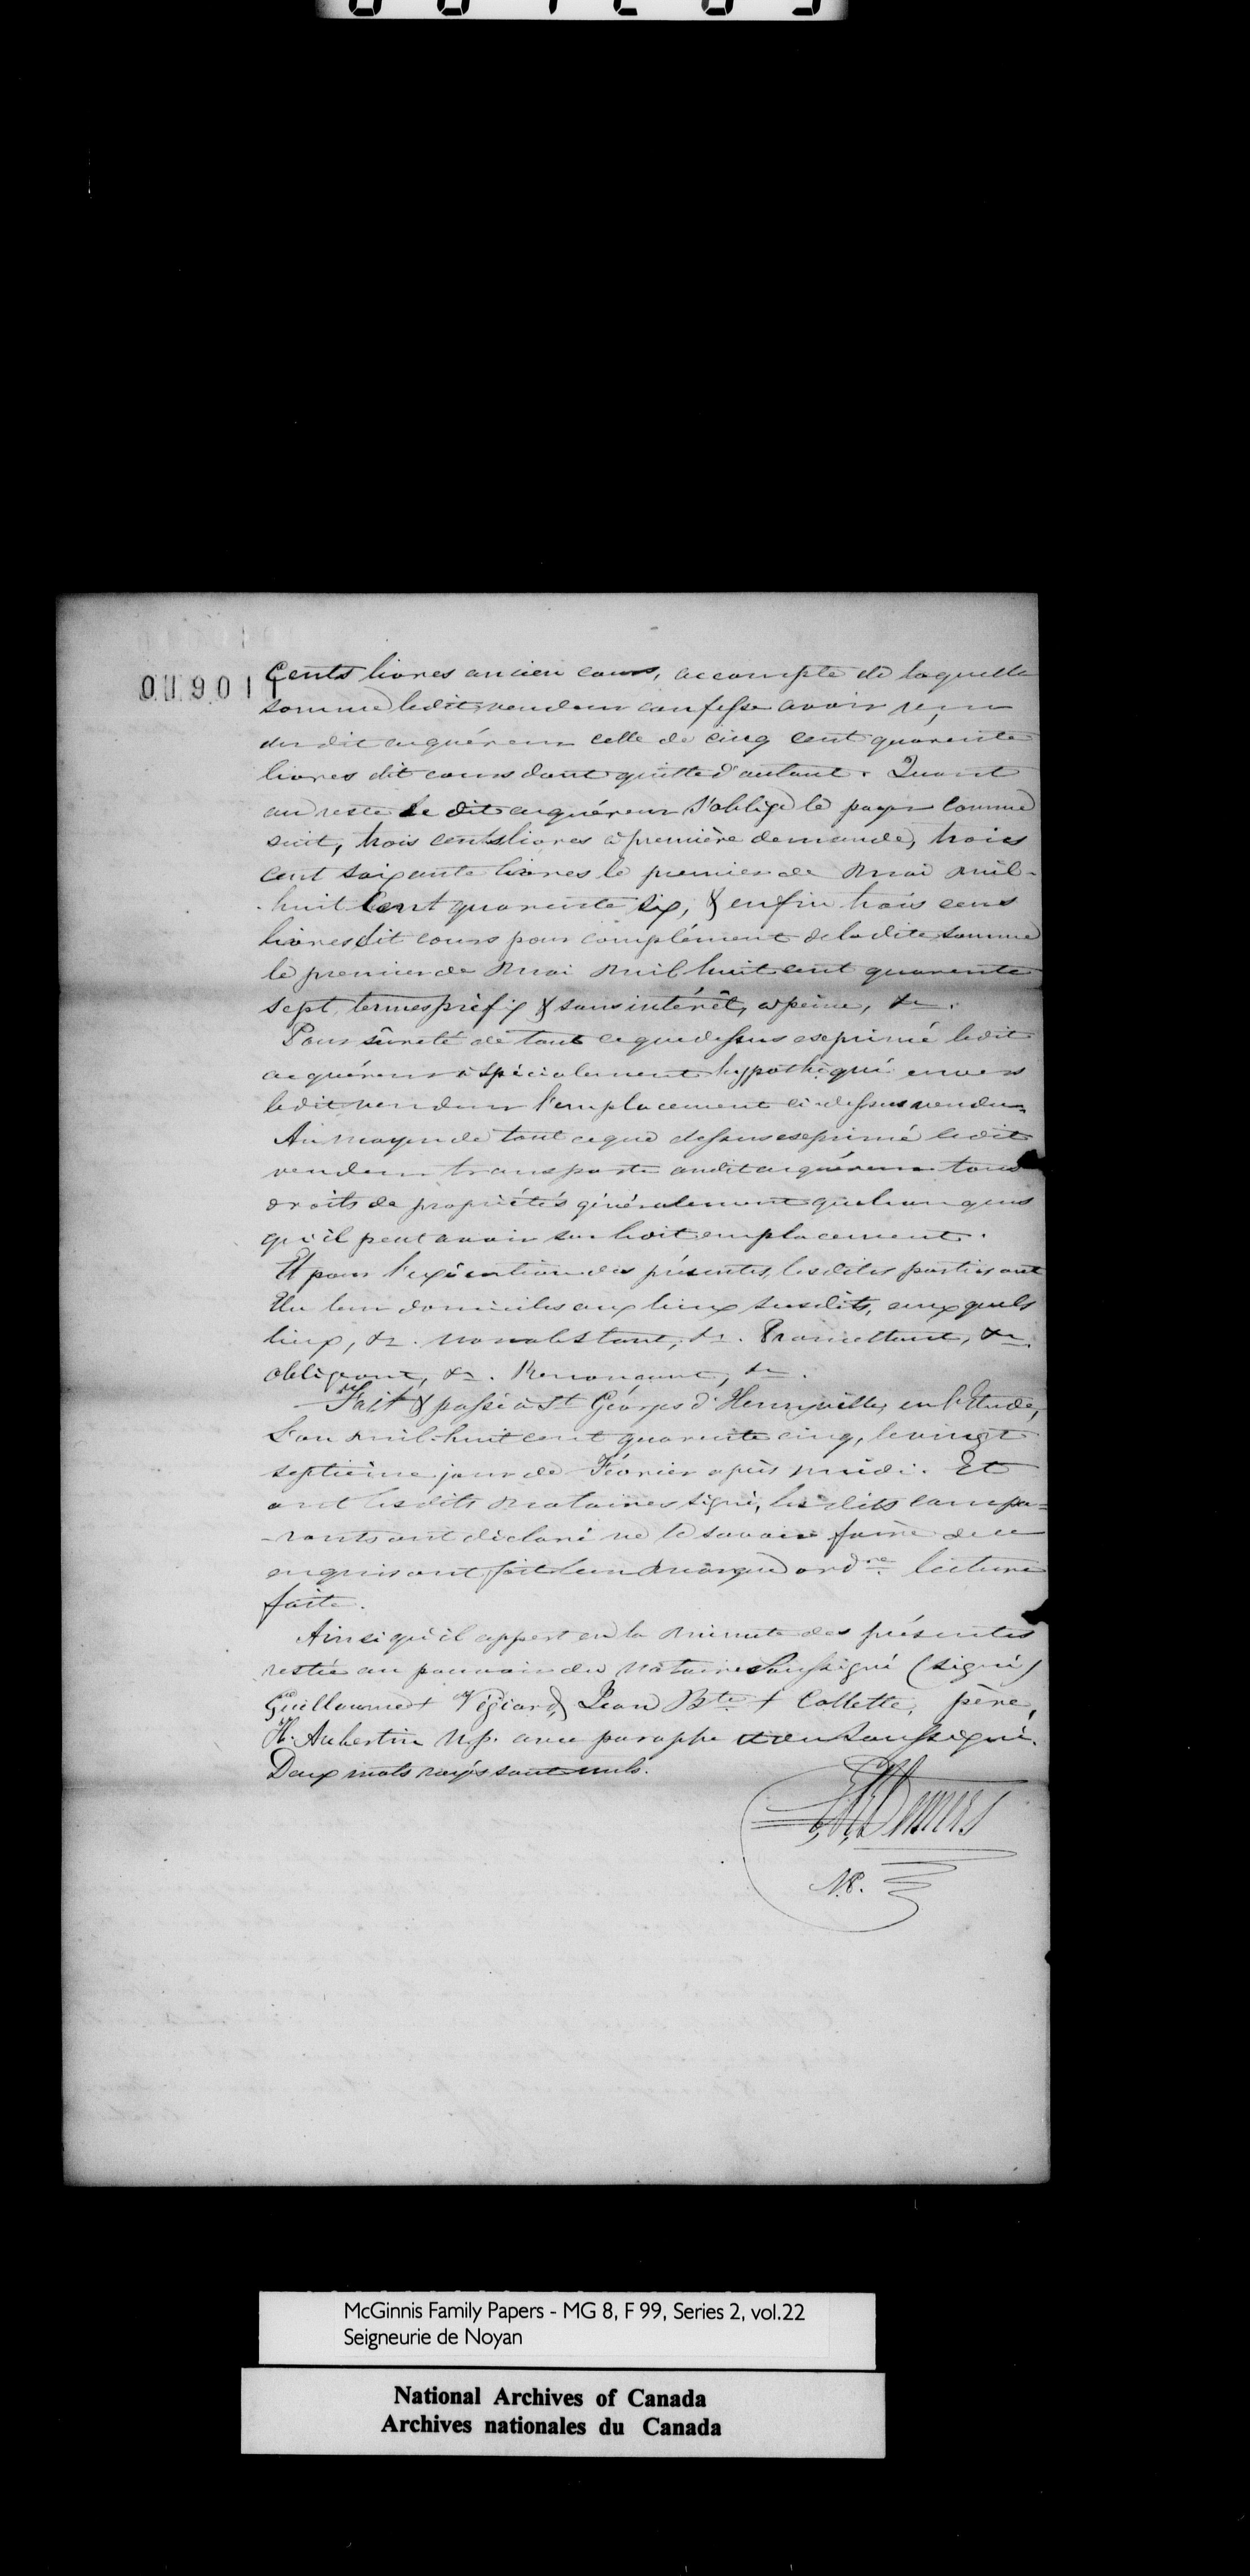 009011
Cents livres ancien cours, accompte de laquelle
somme ledit vendeur confesse avoir reçu
du dit acquéreur celle de cinq cent quarente
livres dit cours dont quitte d'autant. Quant
au reste le dit acquéreur s'oblige le payer comme
suit, trois cents livres à première demande, trois
cent soixante livres le premier de Mai mil-
-huit Cent quarente six, & enfin trois cens
livres dit cours pour complément de la dite somme
le premier de Mai mil huit cent quarente
sept, termes préfix & sans intérêt, à peine, &c.
Pour sûreté de tout ce que dessus exprimé ledit
acquéreur à spécialement hypothéqué envers
ledit vendeur l'emplacement ci-dessus vendu.
Au moyen de tout ce que dessus exprimé ledit
vendeur transporte audit acquéreur tous
droits de propriétés généralement quelconques
qu'il peut avoir sur ledit emplacement.
Et pour l'exécution des présentes, lesdites parties ont
élu leur domiciles aux lieux susdits, auxquels
lieux, &c. nonobstant, &c. Promettant, &c.
obligeant, &c. Renonçant, &c.
Fait & passé à St Géorges d'Henryville, en l'Etude,
L'an mil-huit cent quarente cinq, le vingt
septième jour de Février après midi. Et
ont lesdits Notaires signé, lesdits compa=
-rants ont déclaré ne le savoir faire de ce
enquis ont fait leur marque ordre. lecture
faite.
Ainsi qu'il appert en la Minute des présentes
restée au pouvoir du Notaire Soussigné (signé)
Guillaume + Végiard, Jean Bte + Collette, père,
H. Aubertin N.p. avec paraphe et du Soussigné.
Deux mots rayés sont nuls.
Demers
N.P.
McGinnis Family Papers - MG 8, F 99, Series 2, vol.22
Seigneurie de Noyan
National Archives of Canada
Archives nationales du Canada